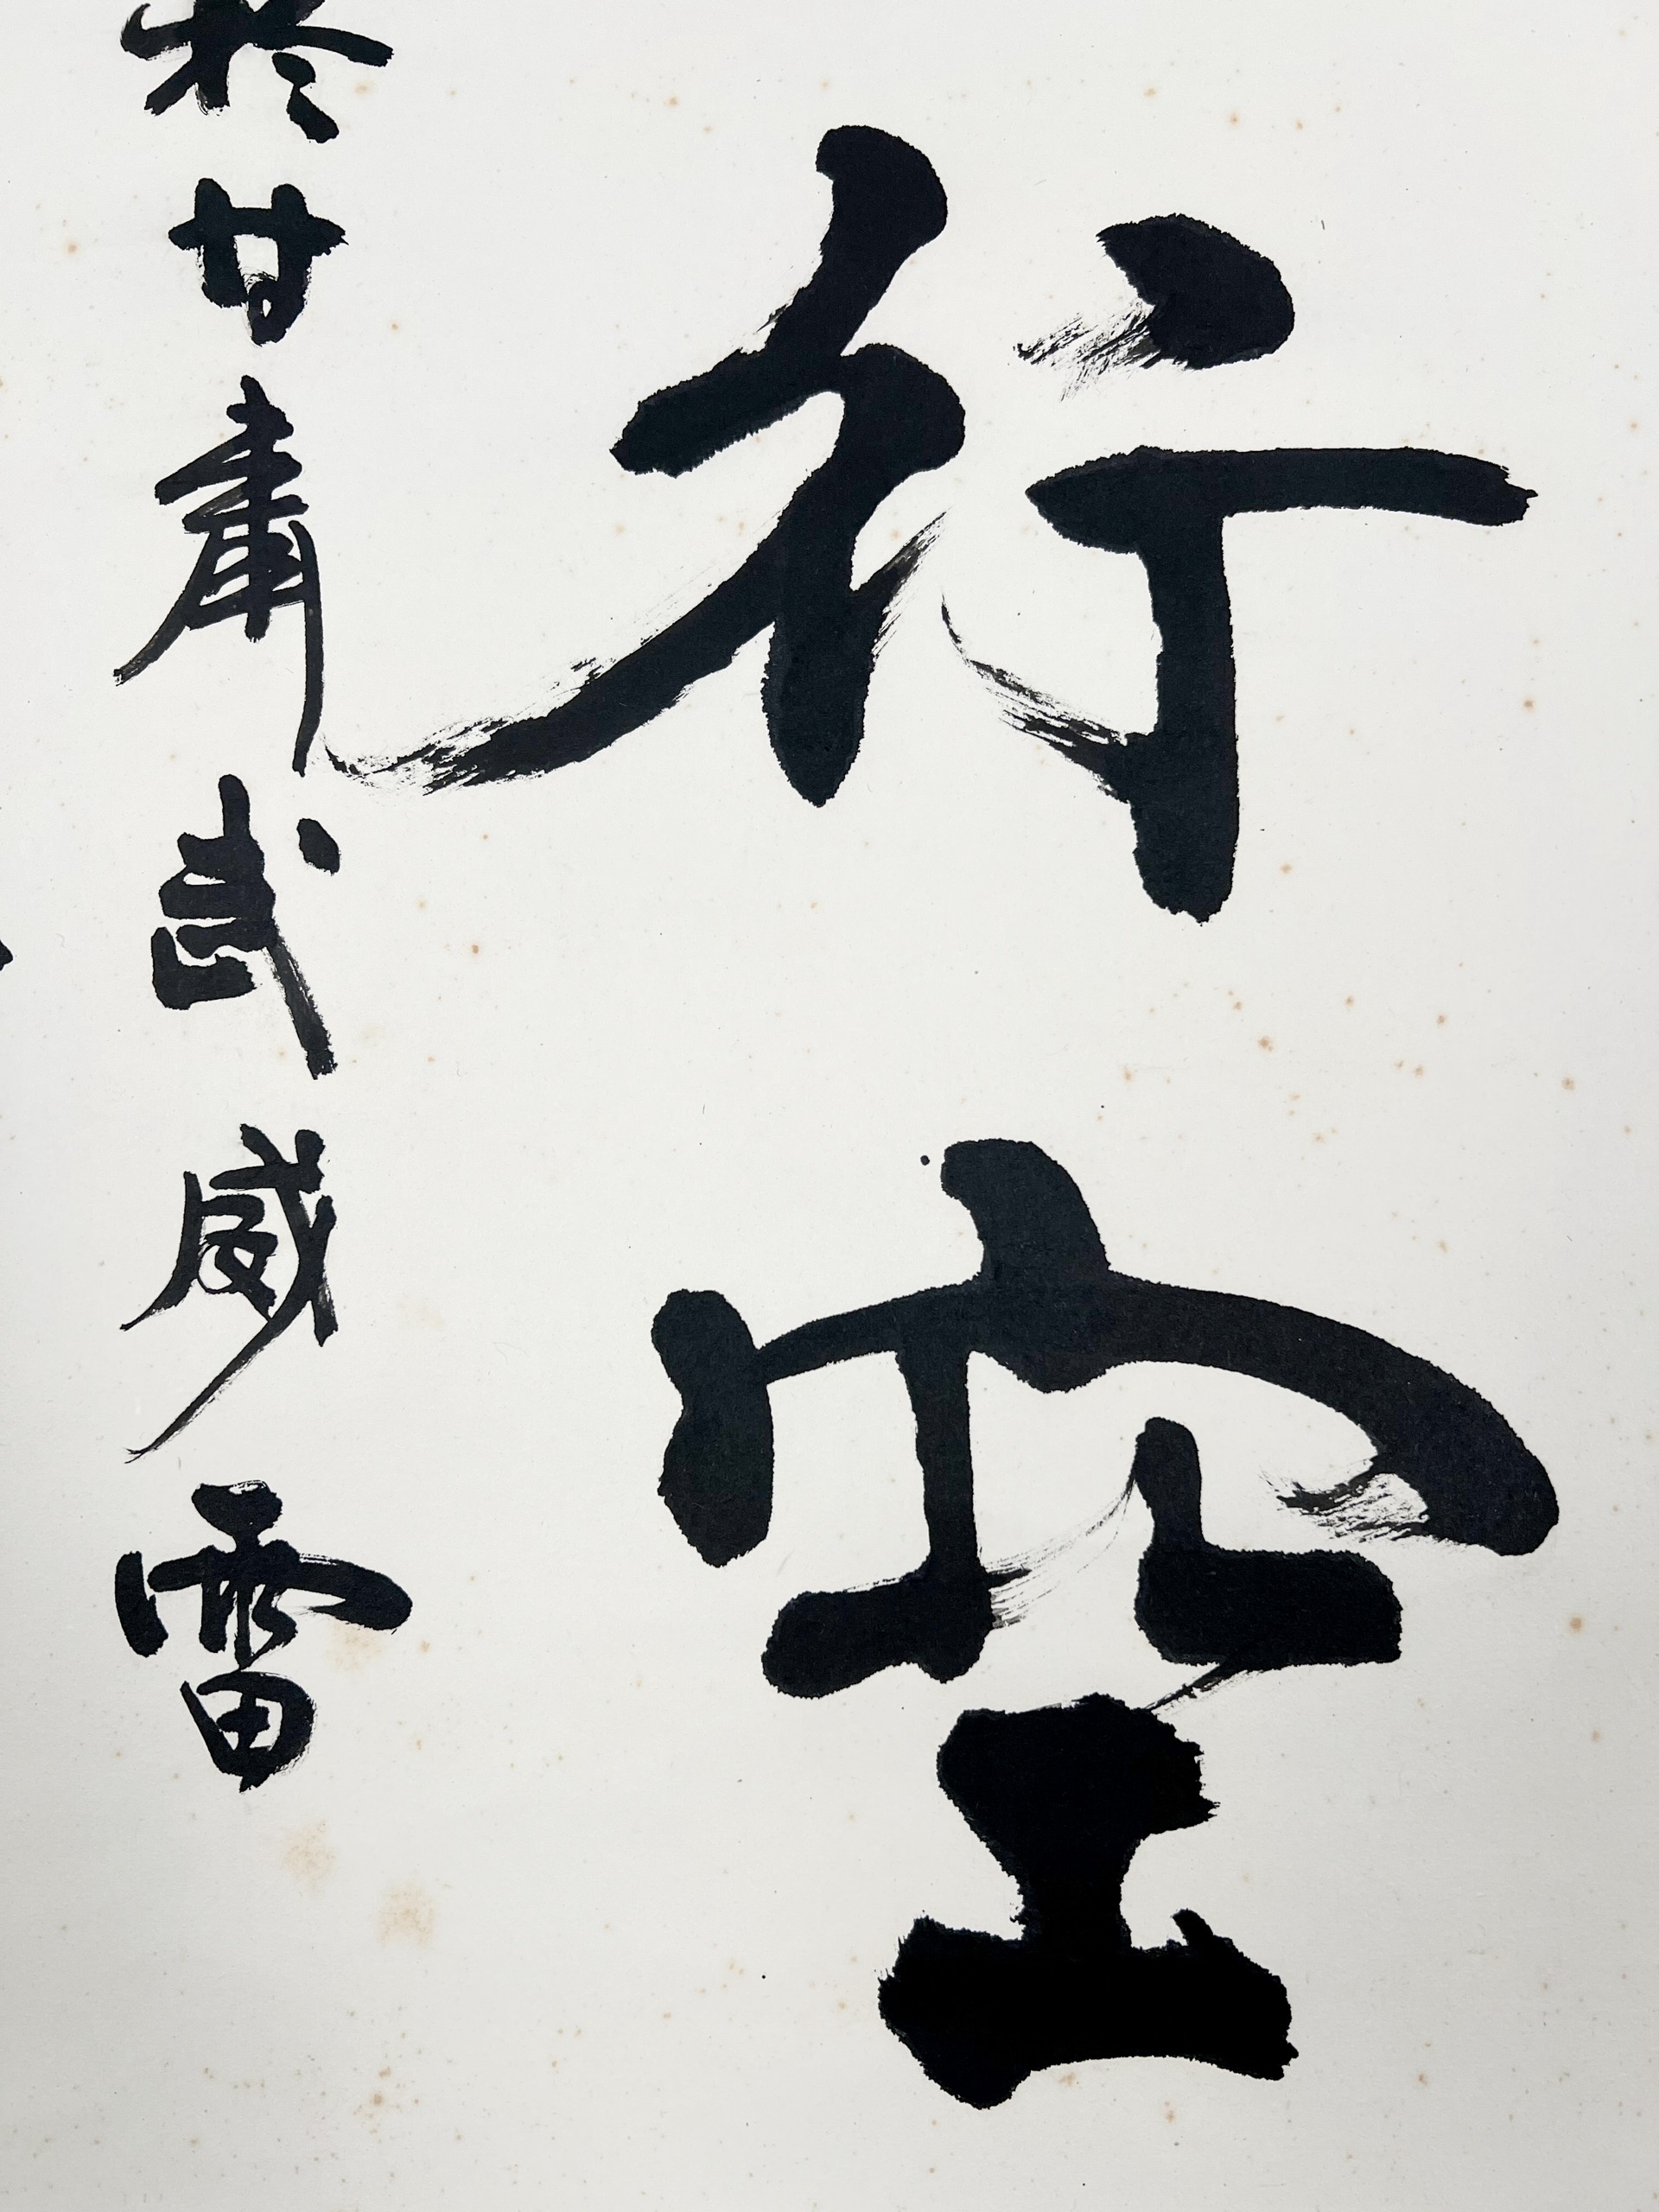 行空
於甘肅武威雷